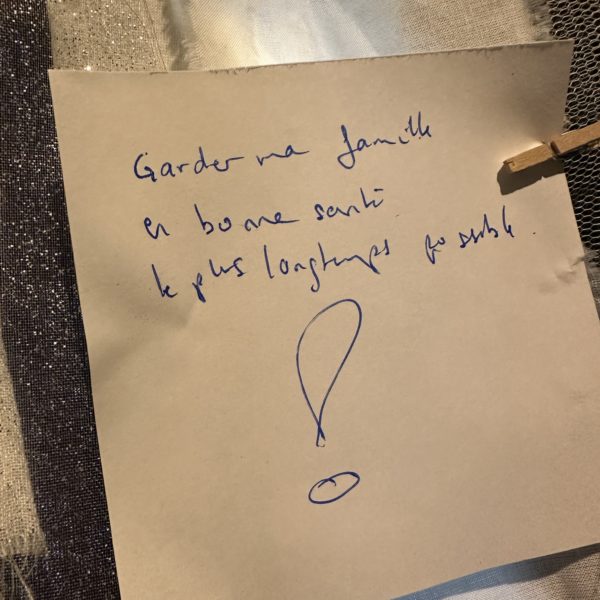 Garder ma famille
en bonne santé
le plus longtemps possible.
!